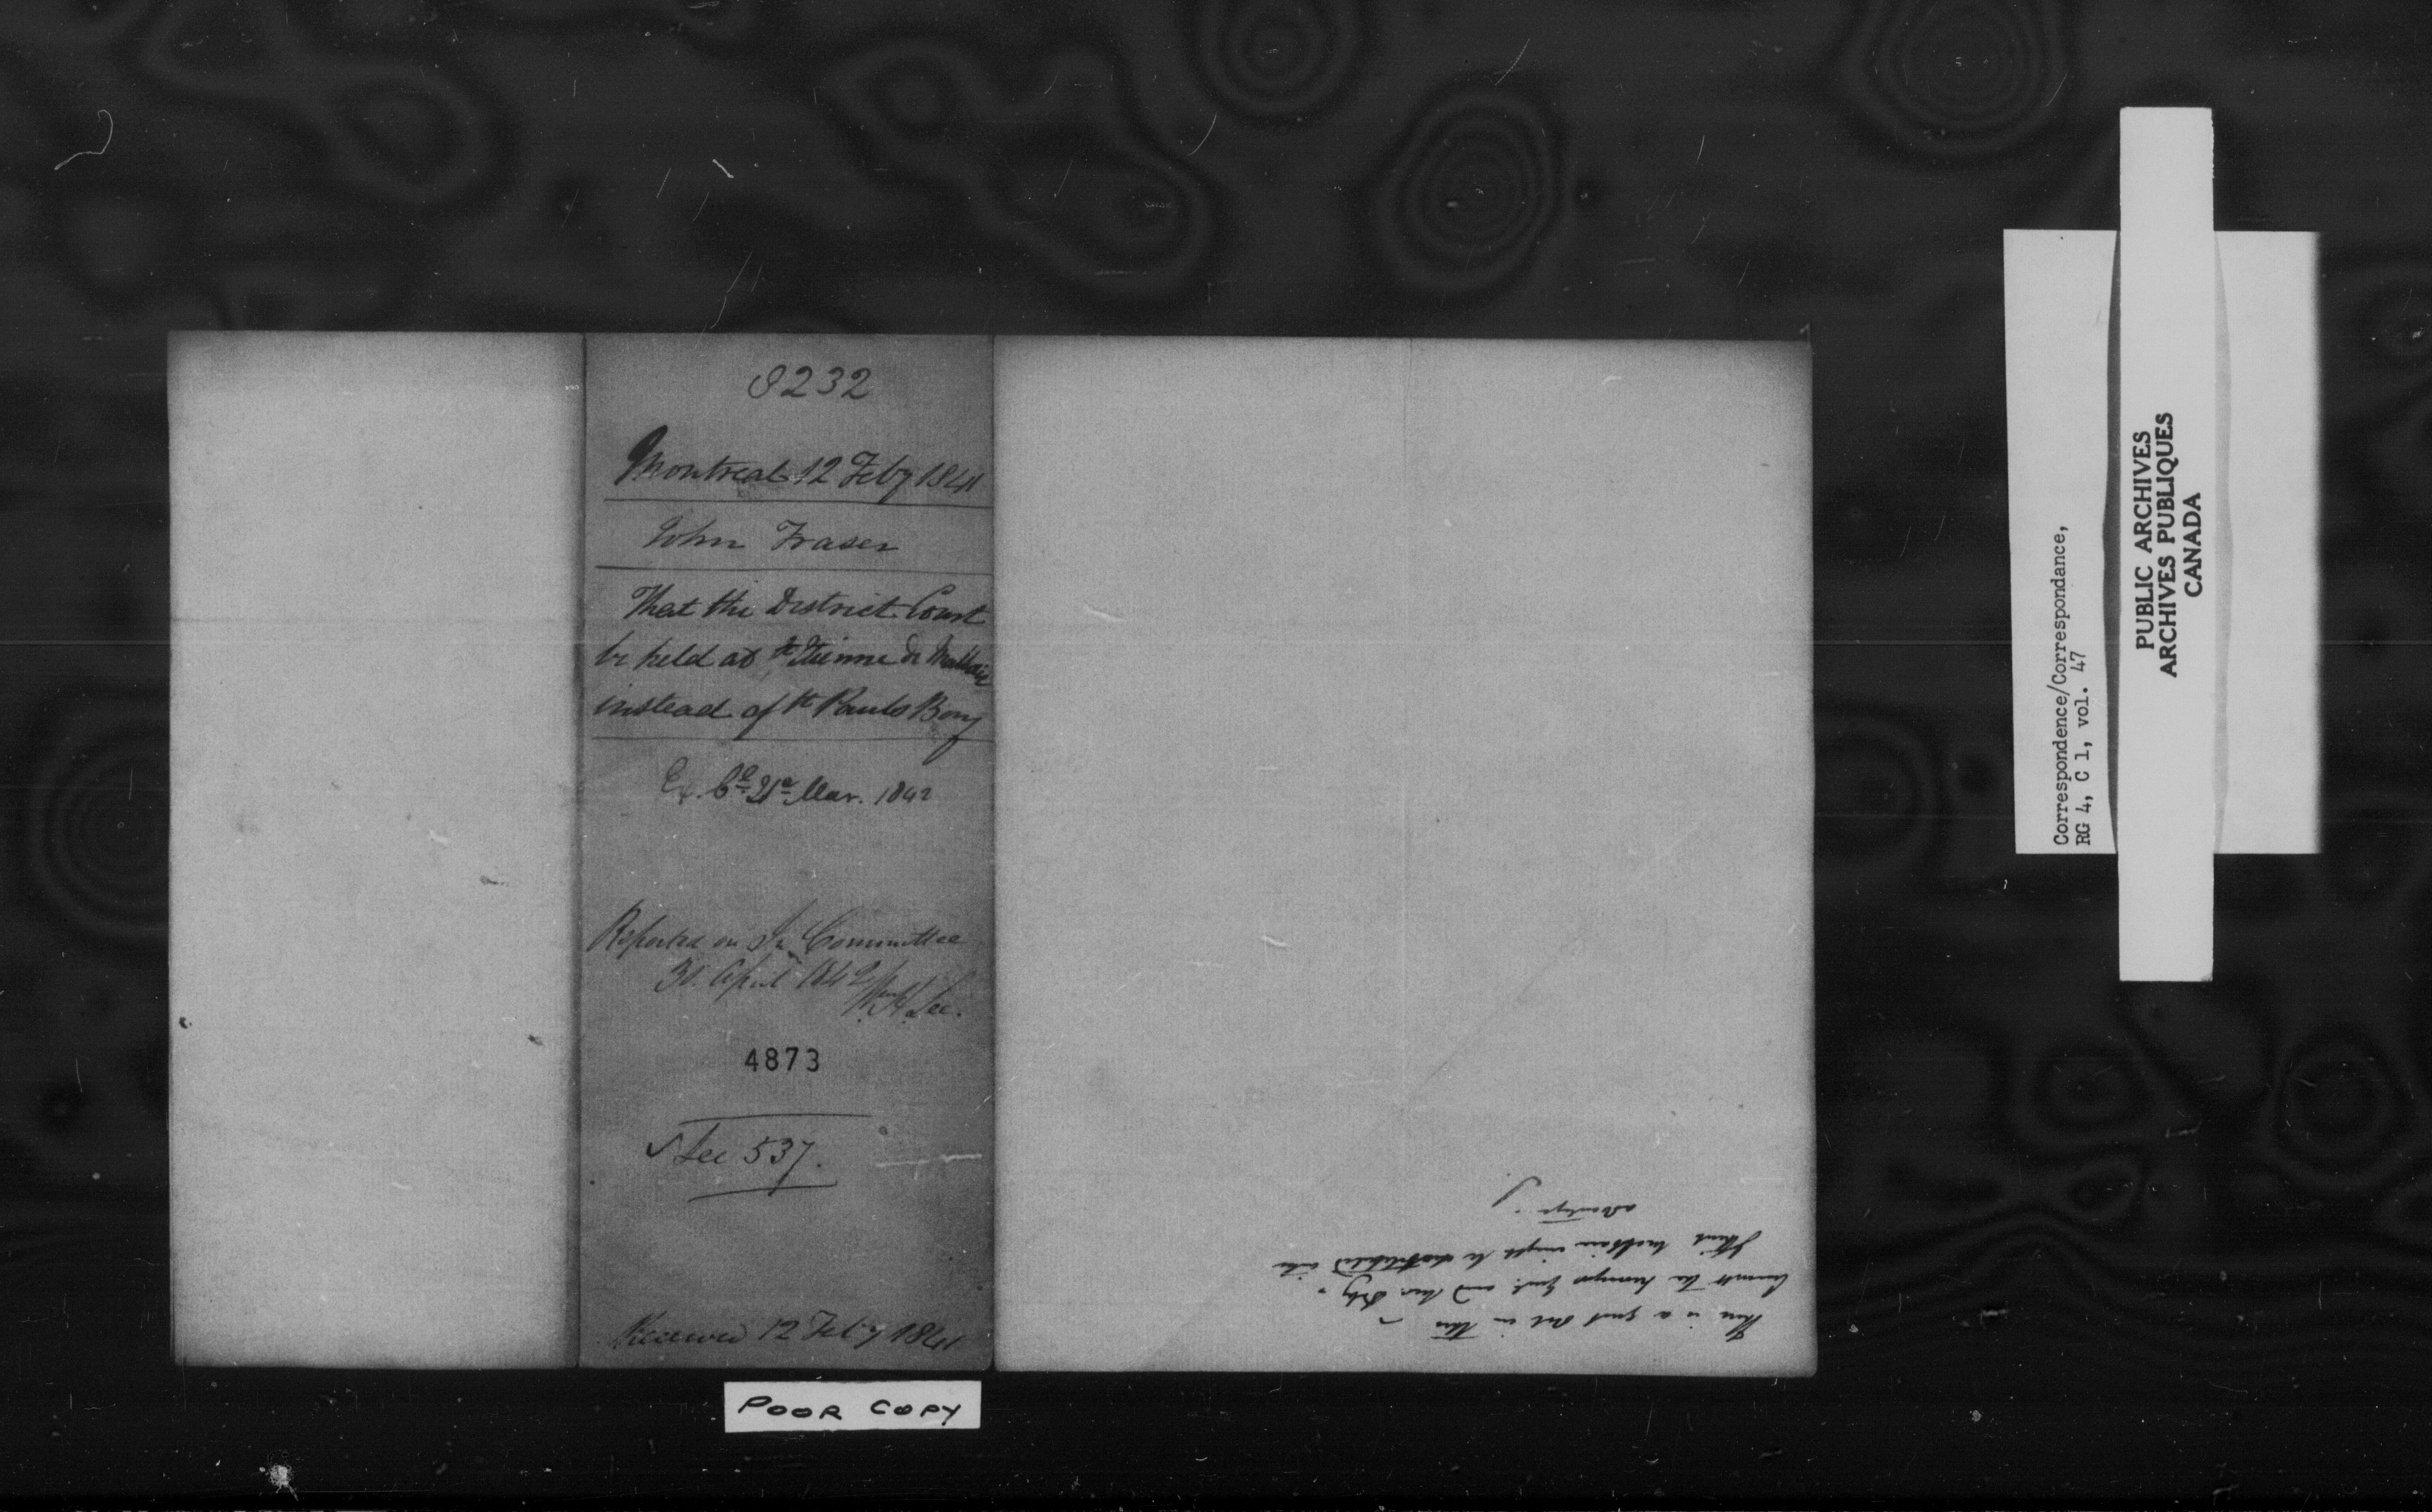 8232
Montreal 12 Feby 1841
John Fraser
That the District Court
be held at St Etienne de Malbaie
instead of St Pauls Bay
Ex. Cl. 21st Mar. 1842
Reported on In Committee
30 April 1842
Wm H. Lee.
4873
See 537.
Received 12 Feby 1841
There is a great deal in this
might be
advantage.
POOR COPY
Correspondence/Correspondance,
RG 4, C 1, vol. 47
PUBLIC ARCHIVES
ARCHIVES PUBLIQUES
CANADA